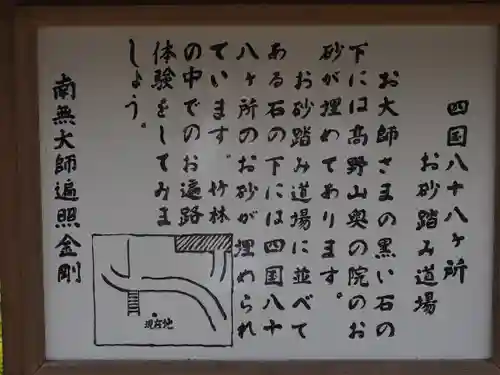 四国八十八ヶ所
お砂踏み道場
お大師さまの黒い石の
下には高野山奥の院のお
砂が埋めてあります。
お砂踏み道場に並べて
ある石の下には四国八十
八ヶ所のお砂が埋められ
ています。竹林
の中でのお遍路
体験をしてみま
しょう。
南無大師遍照金剛
現在地